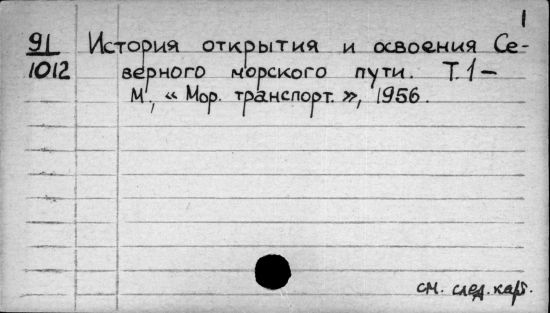 1
91 История открытия и освоения Се-
1012 верного морского пути. Т. 1 –
М., « Мор. транспорт. », 1956.
см. след. карт.